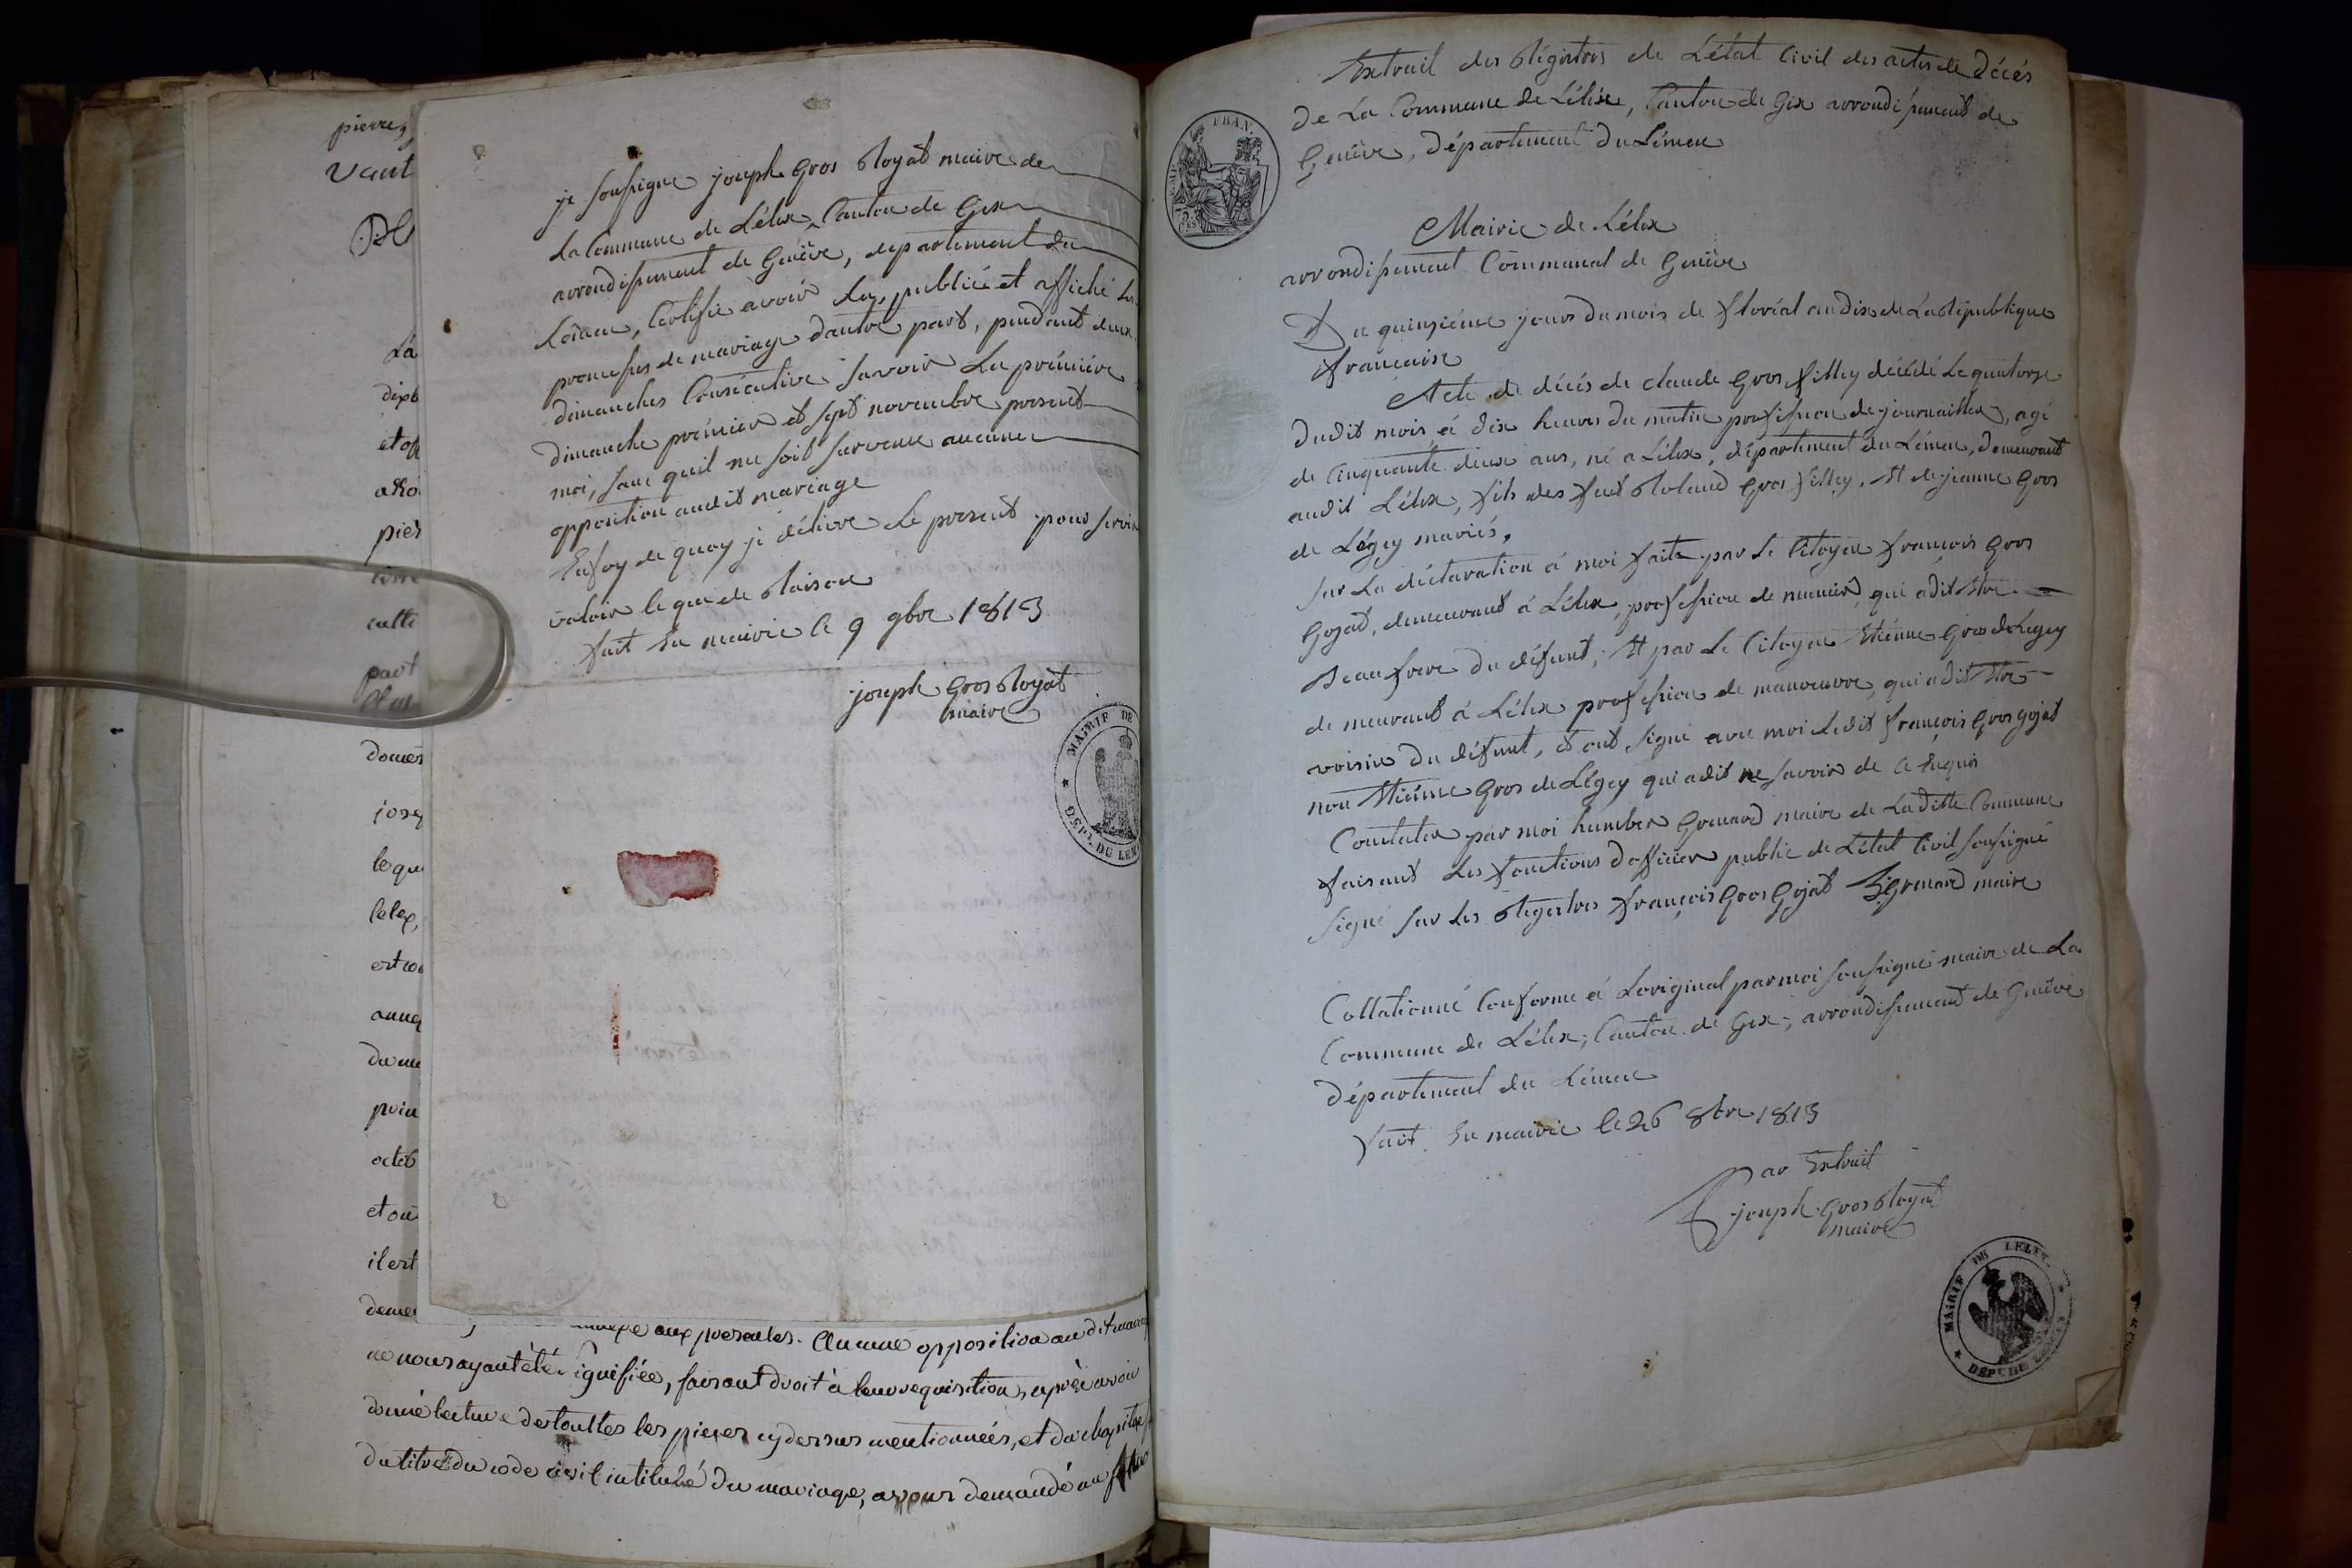 pierre,
vant
La
dixb
et off
pied
cutti
part
domes
jose
lequ
lelex,
est co
anne
du me
prin
octob
et ou
il est
demeu
je soussigne joseph Gros Royat maire de
La Commune de Lélex, Canton de Gex
arrondissement de Genève, département du
Léman, Certifie avoir lu, publié et affiché les
promesses de mariage d'autre part, pendant deux
dimanches Consécutive savoir La première
dimanche prémier et sept novembre present
moi, sans quil ne soit survenue aucune
opposition audit mariage
En foy de quoy je délivre Le present pour servir
valoir le que de Raison
fait En mairie le 9 9bre 1813
joseph Gros Royat
maire
MAIRIE DE
DÉPT. DU LEM
aux presentes. Aucune opposition au dit mariage
ne nous ayant été signifiée, faisant droit à leur requisition, après avoir
donné lecture de touttes les pieces cy dessus mentionnées, et du chapitre
du titre du code civil intitulé du mariage, avons demandé au futur
FRAN.
Extrait des Régistres de L'état Civil des actes de Décés
de La Commune de Lélex, Canton de Gex arrondissement de
Genève, Département du Léman
Mairie de Lélex
arrondissement Communal de Genève
Du quinzième jours du mois de floréal an dix de La République
française
Acte de décés de claude Gros filley décédé Le quatorze
dudit mois à dix heures du matin profession de journaillier, agé
de Cinquante deux ans, né a Lélex, département du Léman, demeurant
audit Lélex, fils des feut Roland Gros filley, Et de jeanne Gros
de Légey mariés,
Sur La déclaration à moi faite par Le Citoyen françois Gros
Gojat, demeurant à Lélex, profession de munier, qui a dit Etre
Beau frere du défunt, Et par Le Citoyen Etiénne Gros de Legey
demeurant à Lélex profession de manoeuvre, qui a dit Etre
voisin du défunt, et ont signé avec moi Ledit françois Gros gojat
non Etiénne Gros de Légey qui a dit ne savoir de Ce Requis
Constater par moi humber Grenard maire de La ditte Commune
faisant Les fonctions d'officier public de L'état Civil soussigné
signé sur Les Régistres françois Gros Gojat h Grenard maire
Collationné Conforme à Loriginal par moi soussigné maire de La
Commune de Lélex, Canton de Gex, arrondissement de Genève
Département du Léman
fait En mairie le 26 8bre 1813
Par Extrait
joseph Gros Royat
maire
MAIRIE DE LELEX
DÉPT. DU